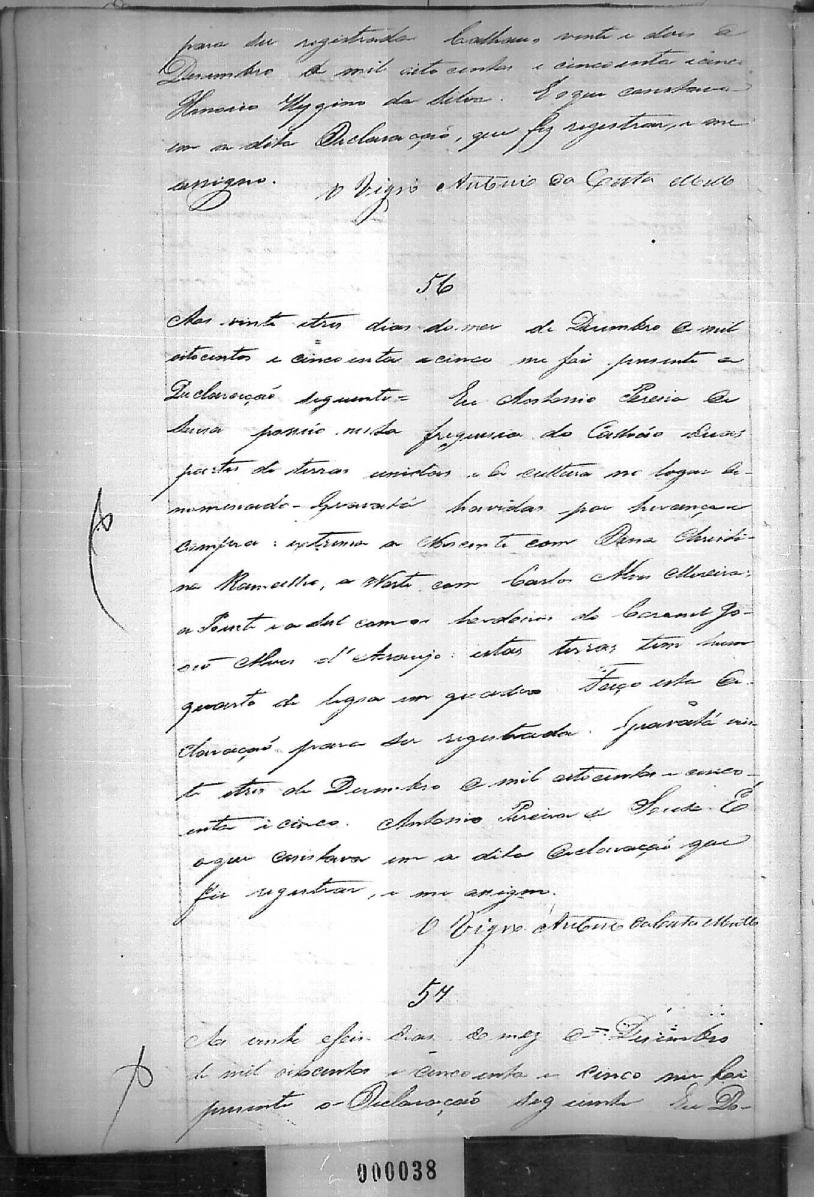 para ser registrada Calhau, vinte e dois de
Desembro de mil oito centos e cincoenta e cinco
Hygino da Silva. E o que constava
em a dita Declaração, que fiz registrar, e me
assigno. O Vigrº Antonio da Costa Mello
56
Aos vinte e tres dias do mes de Desembro de mil
oitocentos e cincoenta e cinco me foi presente a
Declaração seguinte = Eu Antonio Pereira de
Sousa possuo nesta freguesia do Calháo duas
partes de terras unidas, e de cultura no logar de-
nomenado - Gravatá havidas por herança e
compra: extrema a Nascente com Dona
Ramalho, a Norte com Carlos Alves Moreira;
a Poente e a Sul com os herdeiros do Coronel Jo-
sé Alves d'Araujo: estas terras tem hum
quarto de legoa em quadro Faço esta de-
claração para ser registrada. Gravatá vin-
te e tres de Desembro de mil oitocentos e cinco-
enta e cinco. Antonio Pereira de Sousa. E
o que constava em a dita declaração que
fiz registrar, e me assigno.
O Vigrº Antonio da Costa Mello
57
Ao vinte e seis dias do mez de Desembro
de mil oitocentos e cincoenta e cinco me foi
presente a Declaração seguinte Eu Do-
000038